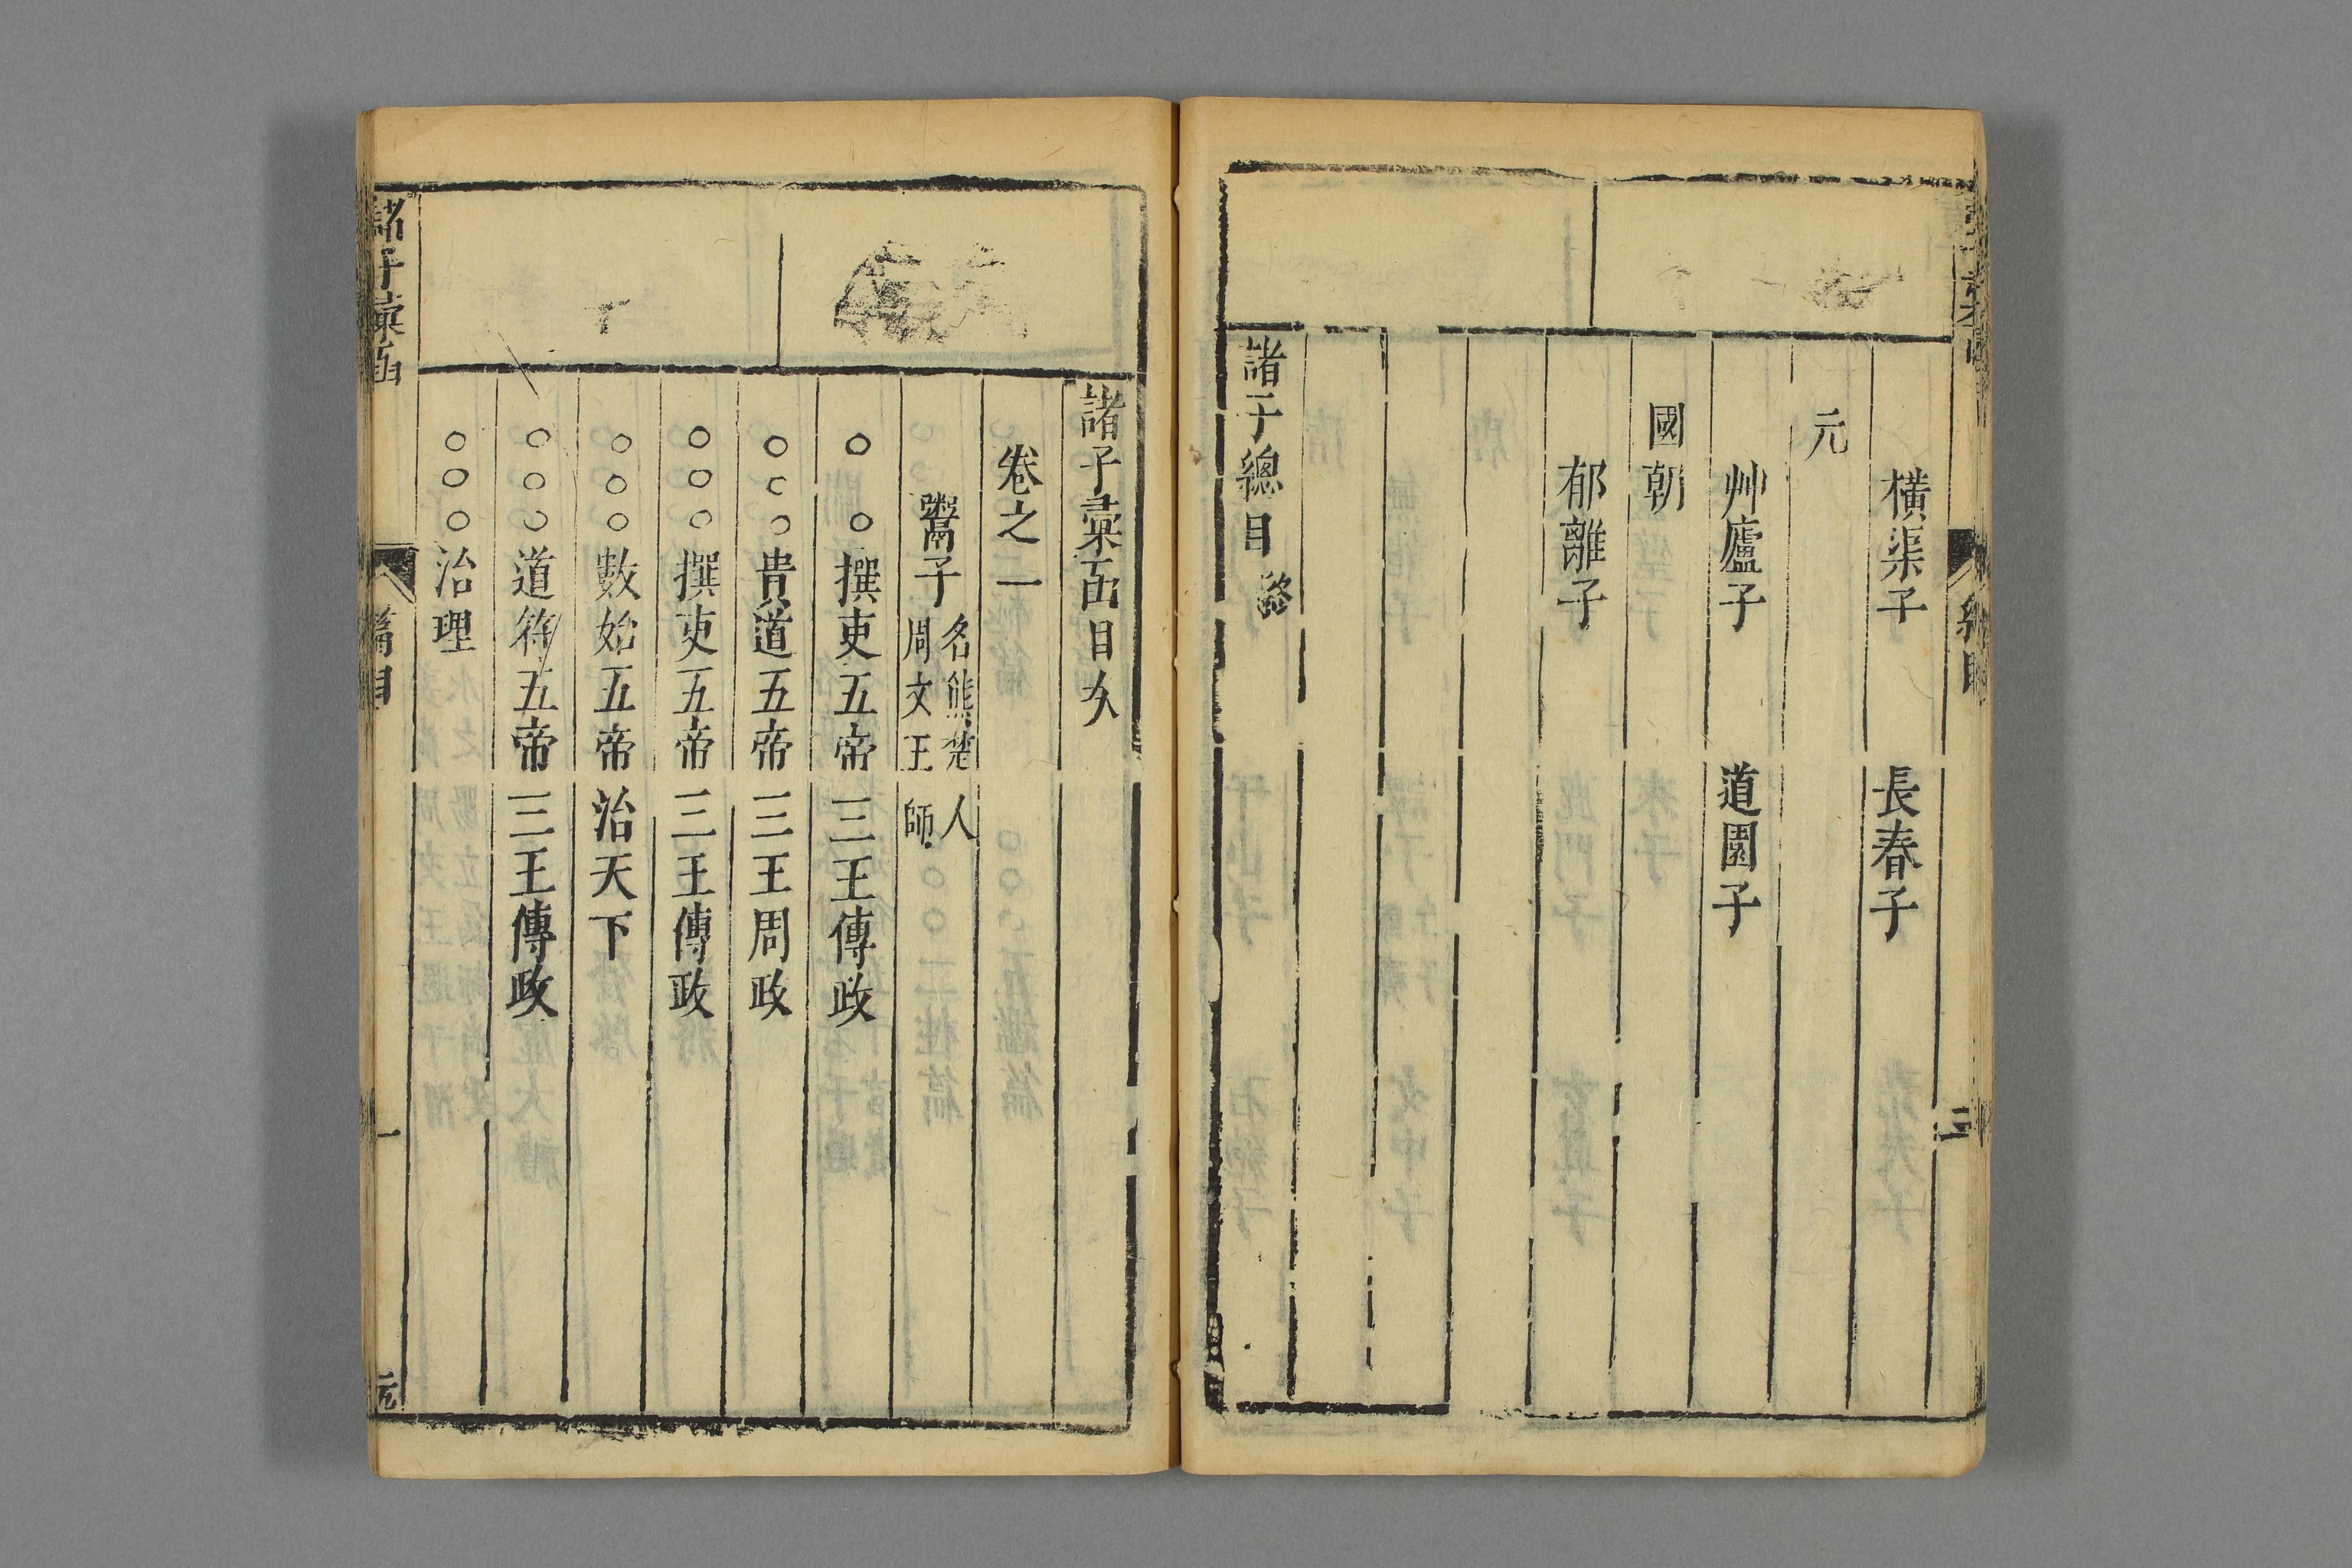 橫渠子 長春子
元
艸廬子 道園子
國朝
郁離子
諸子總目終
三
諸子彙函目次
卷之一
鬻子 名熊楚人
周文王師
○ ○撰吏五帝三王傳政
○○○貴道五帝三王周政
○○○撰吏五帝三王傳政
○○○數始五帝治天下
○○○道符五帝三王傳政
○○○治理
諸子彙函 篇目 一